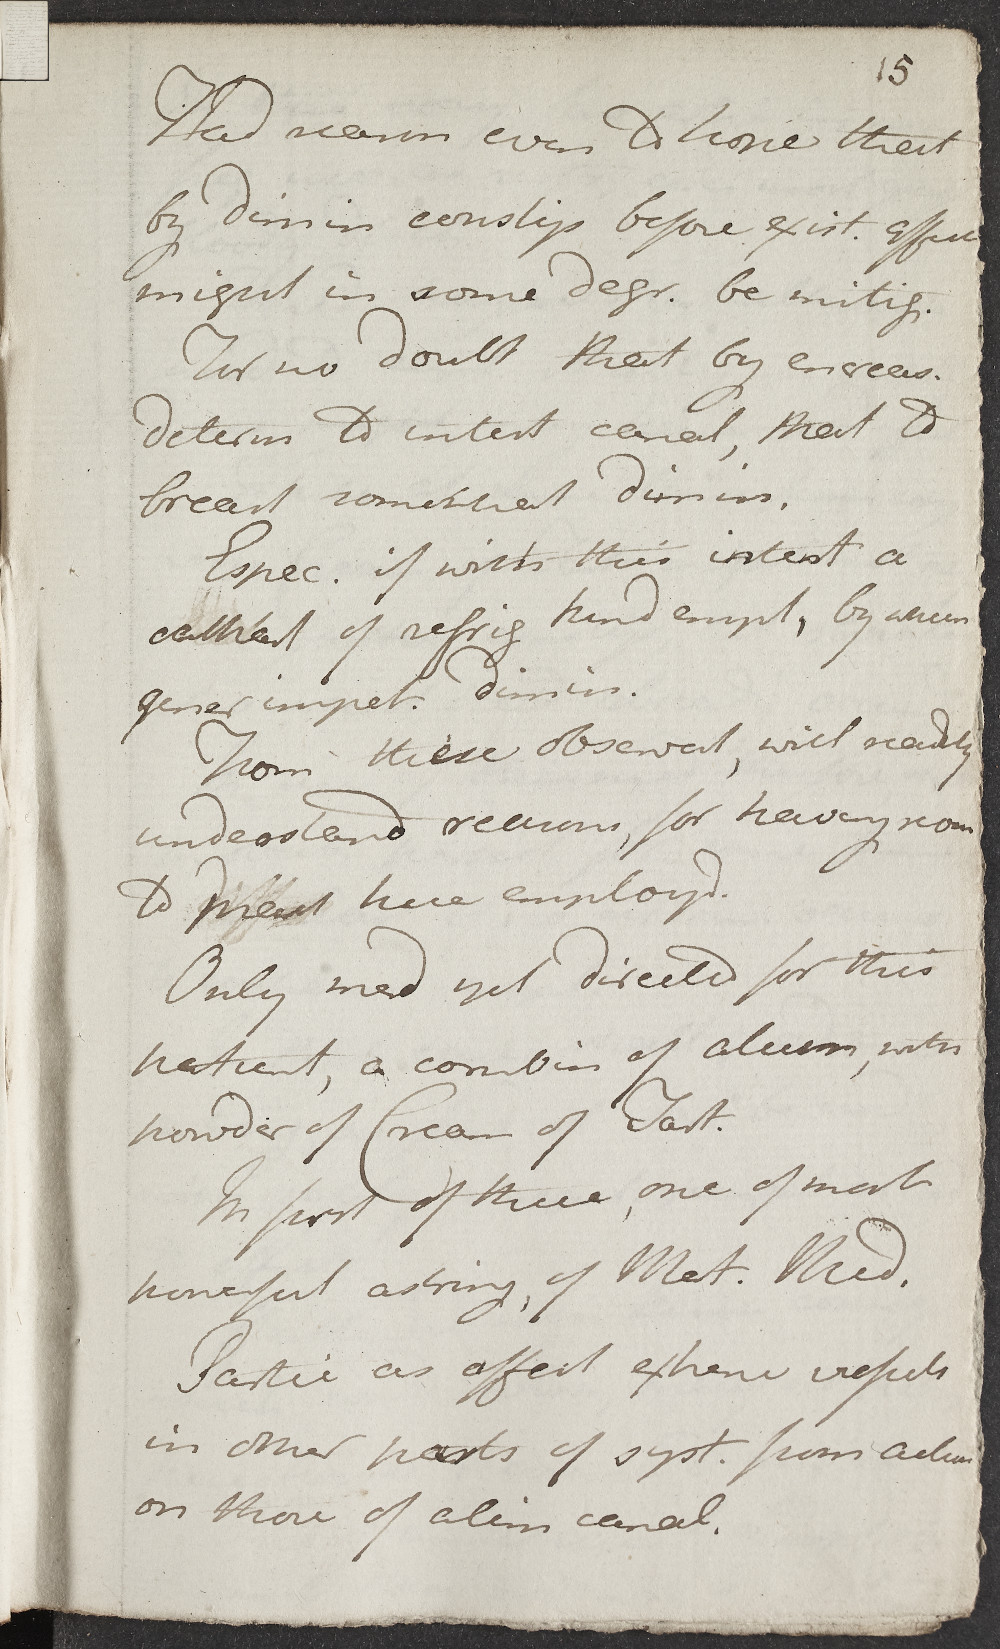 15
Had reason even to hope that
by dimin constip before exist. affect
might in some degr. be mitig.
For no doubt that by encreas.
determ to intest canal, that to
breast somewhat dimin.
Espec. if with this intent a
cathart of refrig kind empl, by whom
gener impet. dimin.
From these observat, will readily
understand reasons, for having recou
to pract here employd.
Only med yet directed for this
patient, a combin of alum, with
powder of Cream of Tart.
In first of these, one of most
powerful astring, of Mat. Med.
Partic as affect exhal vessels
in other parts of syst. from action
on those of alim canal.